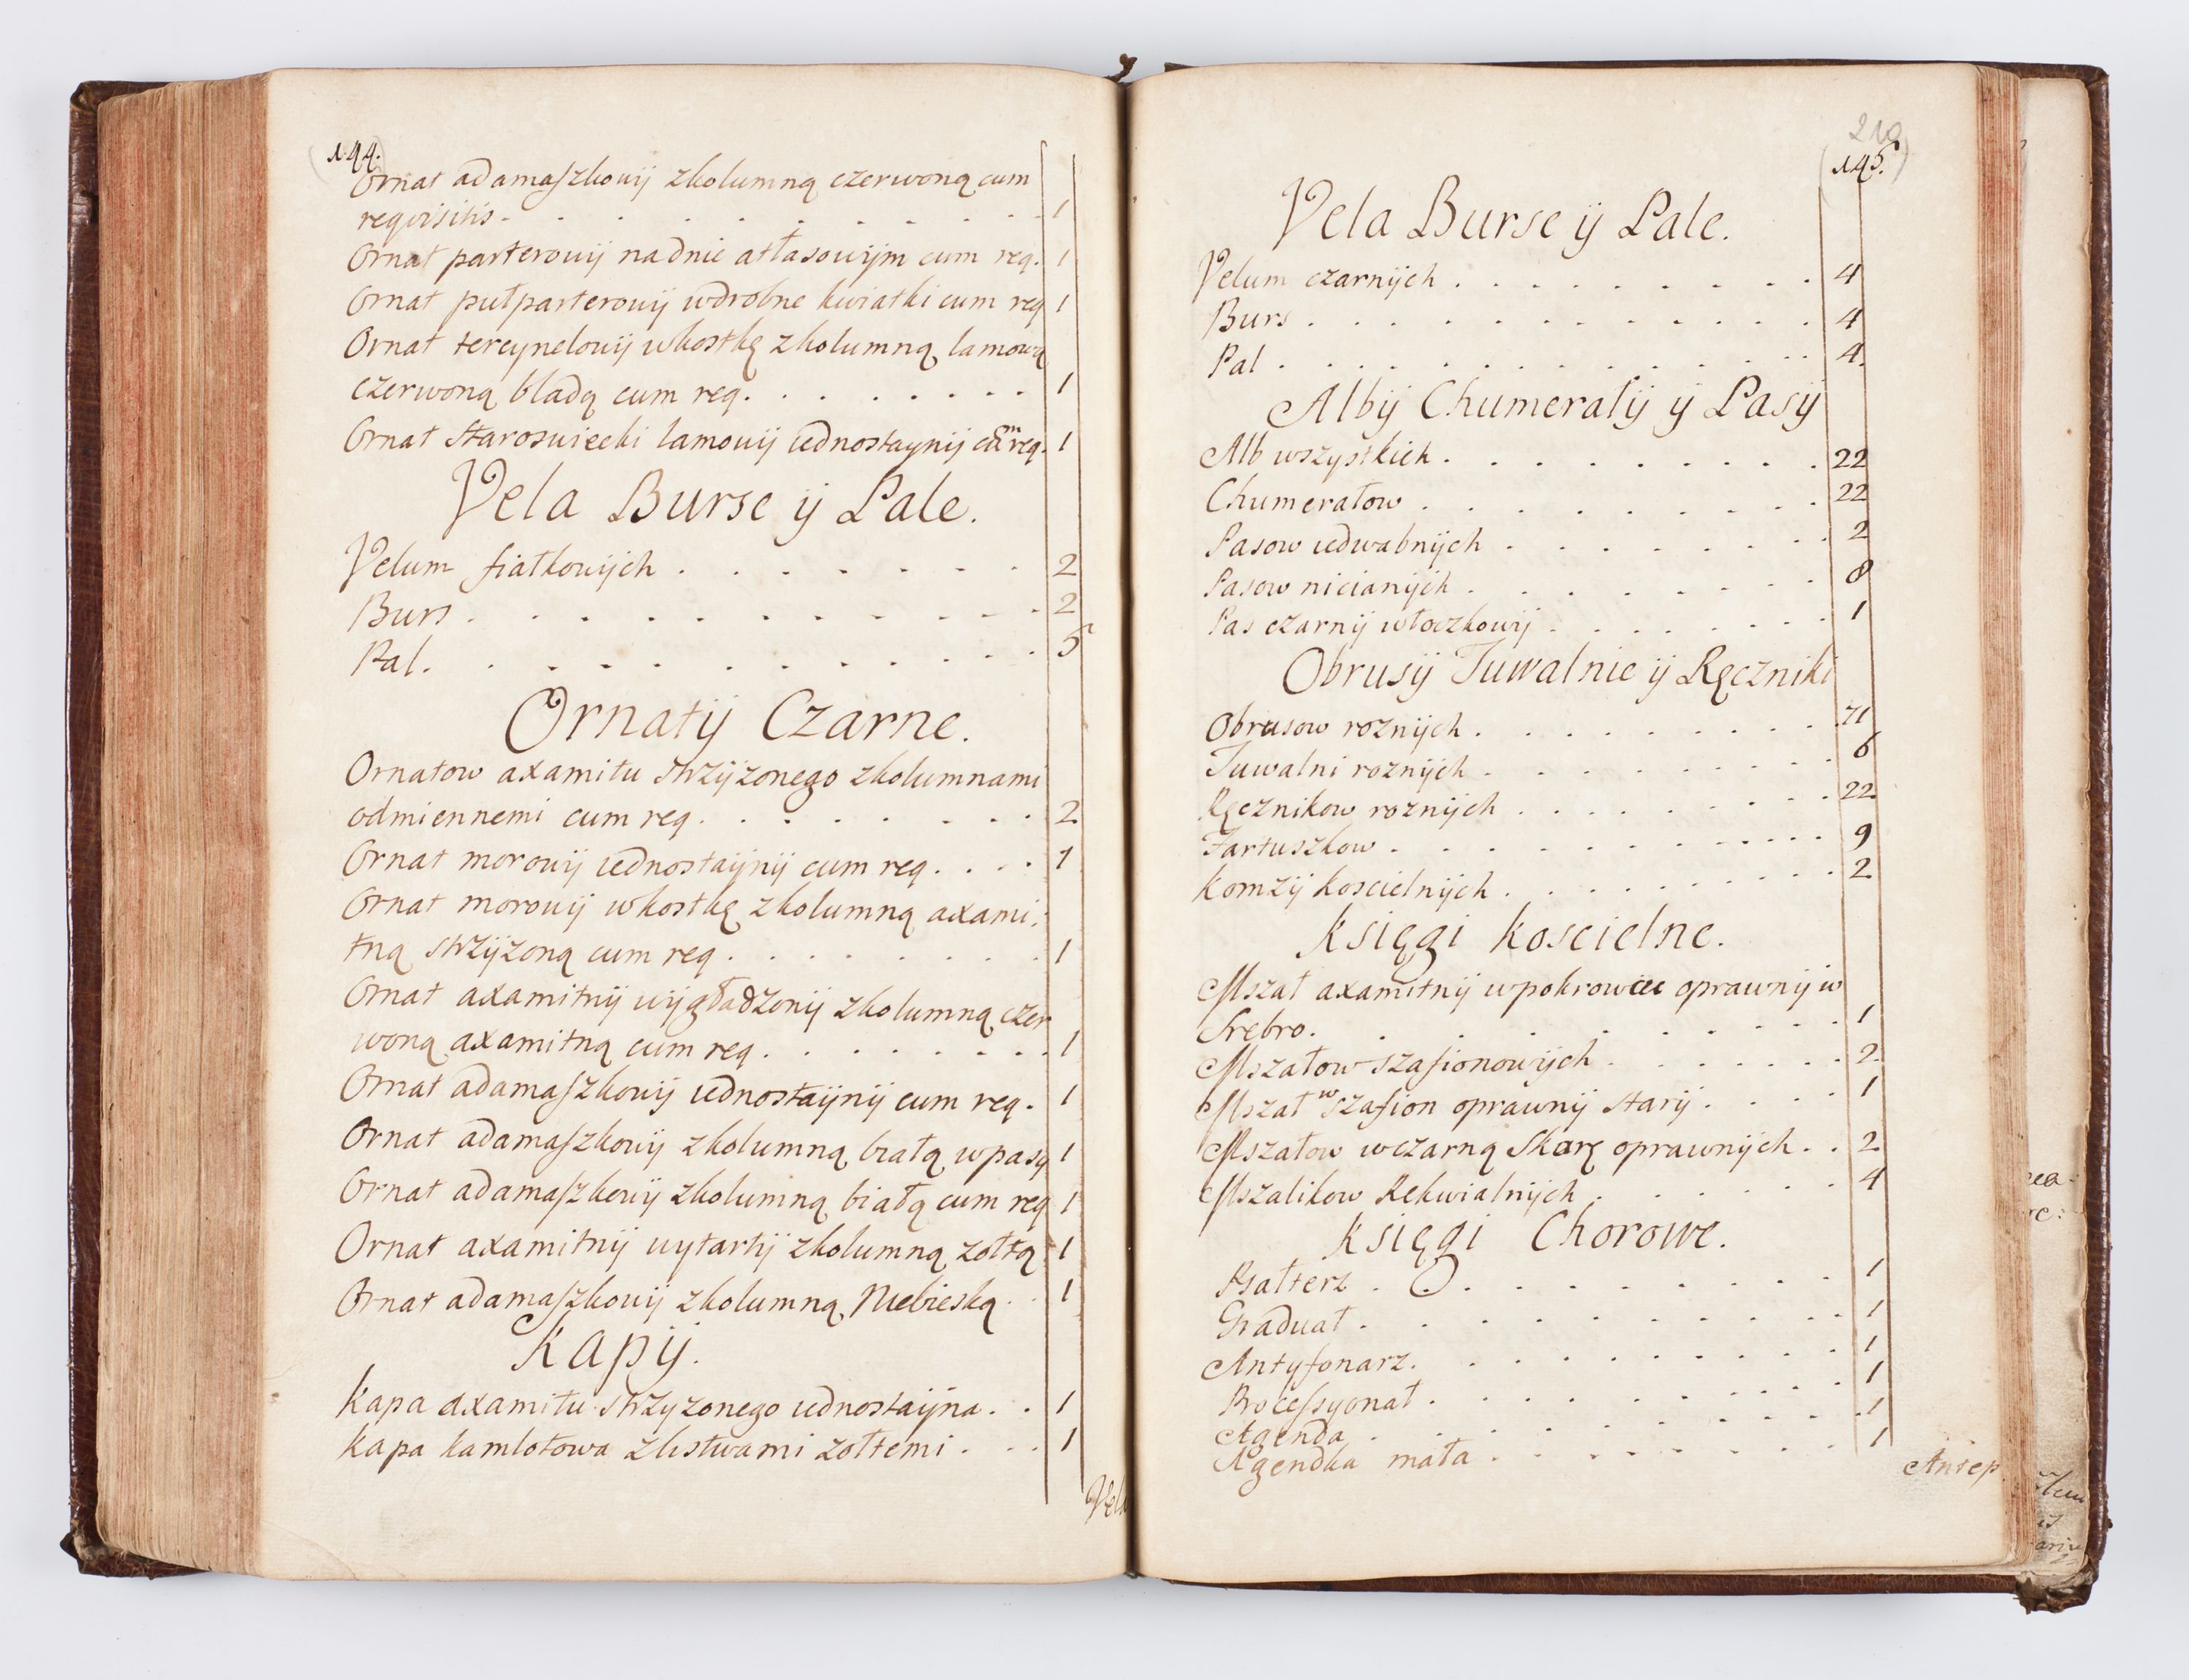 144.
Ornat adamaszkowij zkolumną czerwoną cum
reqvisitis - 1
Ornat parterowij nadnie atłasowijm cum req. 1
Ornat pułparterowij wdrobne kwiatki cum req 1
Ornat tercynelowij wkostkę zkolumną lamową
czerwoną bladą cum req. 1
Ornat Staroswiecki lamowij iednostaynij cum req. 1
Vela Burse ij Pale.
Velum fiałkowijch 2
Burs 2
Pal. 5
Ornatij Czarne.
Ornatow axamitu strzijzonego zkolumnami
odmiennemi cum req. 2
Ornat morowij iednostaijnij cum req. 1
Ornat morowij wkostkę zkolumną axami:
tną strzijzoną cum req. 1
Ornat axamitnij wijgładzonij zkolumną czer
woną axamitną cum req. 1
Ornat adamaszkowij iednostaijnij cum req. 1
Ornat adamaszkowij zkolumną białą wpasy 1
Ornat adamaszkowij zkolumną białą cum req 1
Ornat axamitnij wytartij zkolumną zołtą 1
Ornat adamaszkowij zkolumną Niebieską 1
Kapij.
Kapa axamitu strzyzonego iednostaijna. 1
Kapa kamlotowa zlistwami zołtemi. 1
Vela
219
145.
Vela Burse ij Pale.
Velum czarnijch 4
Burs 4
Pal 4.
Albij Chumerałij ij Pasij
Alb wszystkich 22
Chumerałow 22
Pasow iedwabnijch 2
Pasow nicianijch 8
Pas czarnij włoczkowij 1
Obrusij Tuwalnie ij Ręczniki
Obrusow roznijch 71
Tuwalni roznijch 6
Ręcznikow roznijch 22
Fartuszkow 9
Komzij koscielnijch 2
Księgi koscielne.
Mszał axamitnij wpokrowcu oprawnij w
Srebro. 1
Mszałow szafionowijch 2.
Mszał w szafion oprawnij starij. 1
Mszałow wczarną Skurę oprawnijch 2
Mszalikow Rekwialnijch 4
Księgi Chorowe.
Psałterz 1
Graduał 1
Antyfonarz. 1
Processyonał 1
Agenda 1
Agendka mała 1
Antep